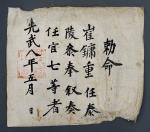 勅命
崔鏞重任泰
陵叅奉叙奏
任官七等者
光武八年五月 日